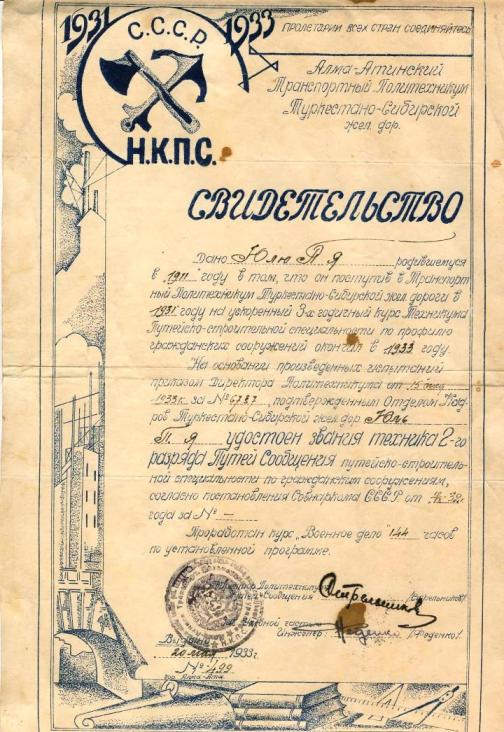 1931 С.С.С.Р. 1933
Н.К.П.С.
ПРОЛЕТАРИИ ВСЕХ СТРАН СОЕДИНЯЙТЕСЬ
Алма-Атинский
Транспортный Политехникум
Туркестано-Сибирской
жел. дор.
СВИДЕТЕЛЬСТВО
Дано Юлю П Я родившемуся
в 1911 году в том, что он поступив в Транспорт
ный Политехникум Туркестано-Сибирской жел. дороги в
1931 году на ускоренный 3-х годичный курс Техникума
Путейско-строительной специальности по профилю
гражданских сооружений окончил в 1933 году.
На основании произведенных испытаний
приказом Директора Политехникума от 15
1933 г. за № 6787, подтвержденным Отделом Кад
ров Туркестано-Сибирской жел. дор. Юль
П Я удостоен звания техника 2-го
разряда Путей Сообщения путейско-строитель-
ной специальности по гражданским сооружениям,
согласно постановления Совнаркома СССР от
года за № —
Проработан курс „Военное дело" 144 часов
по установленной программе.
Директор Политехникума
Путей Сообщения (Стрельников)
Зав. Учебной частью
Инженер (Феденко).
Выдано
20 мая 1933 г.
№ 422
гор. Алма-Ата